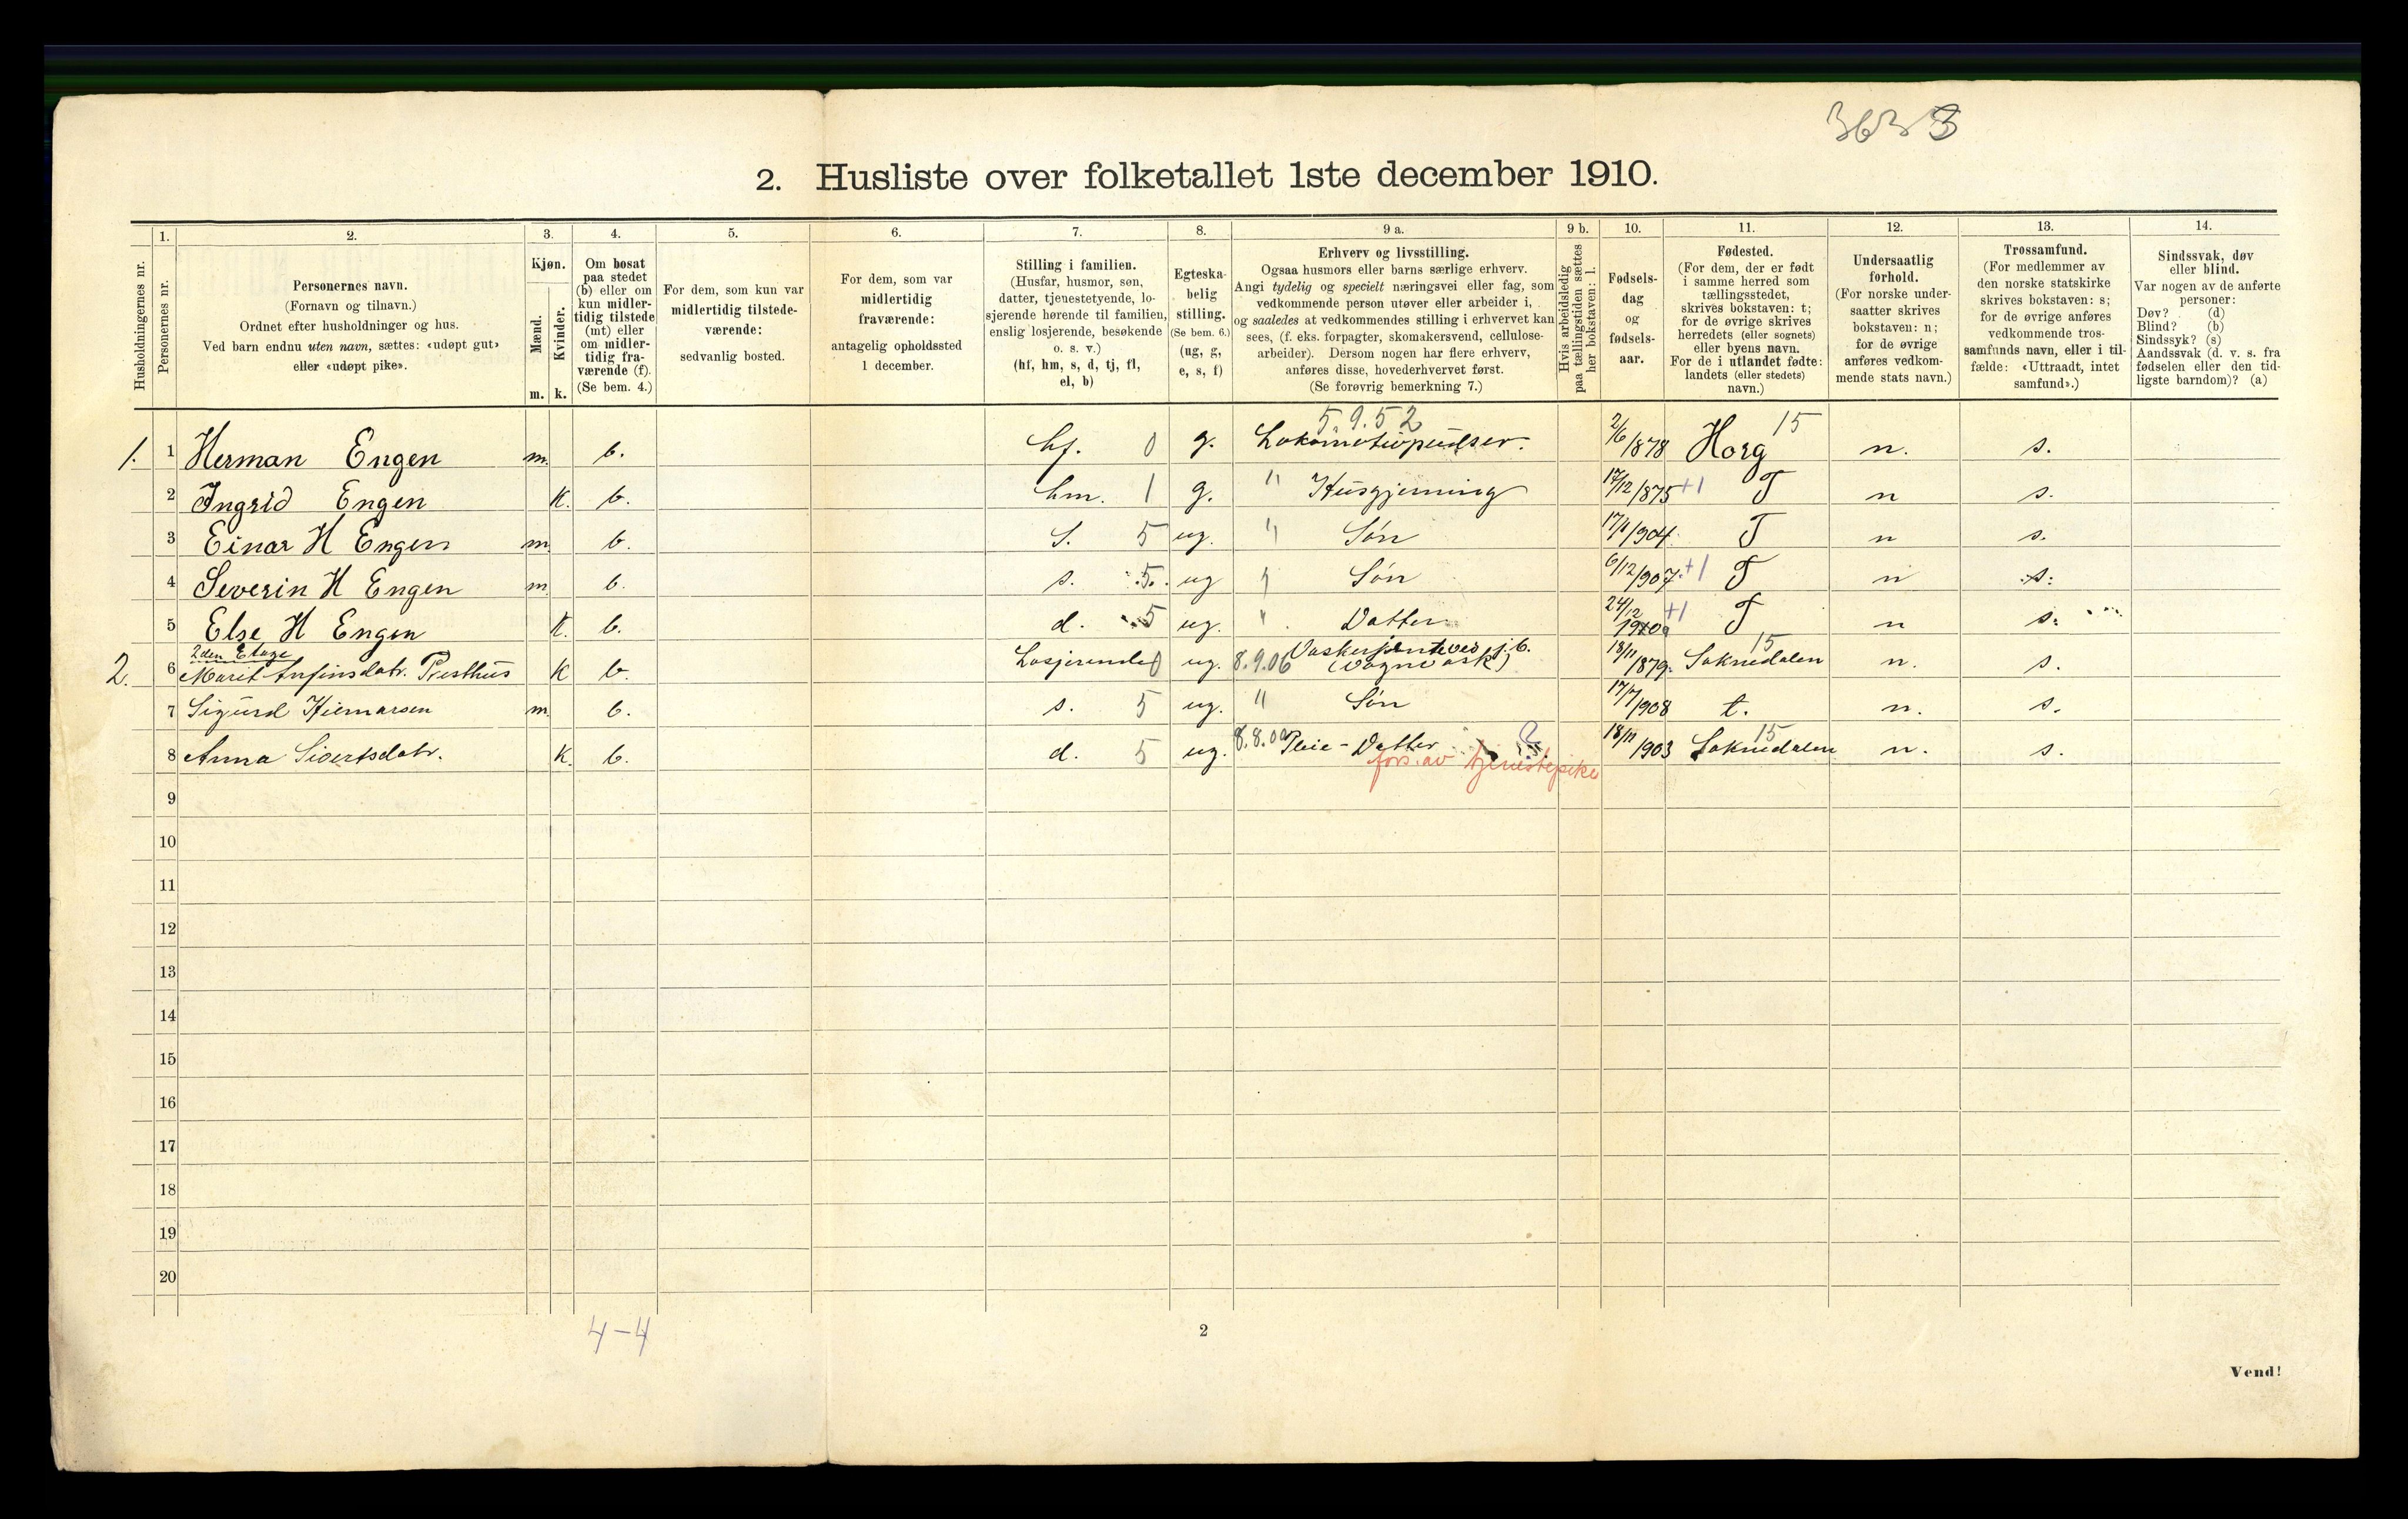 3633
2. Husliste over folketallet 1ste december 1910.
Husholdningernes nr.
1.
Personernes nr.
2.
Personernes navn.
(Fornavn og tilnavn.)
Ordnet efter husholdninger og hus.
Ved barn endnu uten navn, sættes: «udøpt gut»
eller «udøpt pike».
3.
Kjøn.
Mænd.
Kvinder.
m. k.
4.
Om bosat
paa stedet
(b) eller om
kun midler-
tidig tilstede
(mt) eller
om midler-
tidig fra-
værende (f).
(Se bem. 4.)
5.
For dem, som kun var
midlertidig tilstede-
værende:
sedvanlig bosted.
6.
For dem, som var
midlertidig
fraværende:
antagelig opholdssted
1 december.
7.
Stilling i familien.
(Husfar, husmor, søn,
datter, tjenestetyende, lo-
sjerende hørende til familien,
enslig losjerende, besøkende
o. s. v.)
(hf, hm, s, d, tj, fl,
el, b)
8.
Egteska-
belig
stilling.
(Se bem. 6.)
(ug, g,
e, s, f)
9 a.
Erhverv og livsstilling.
Ogsaa husmors eller barns særlige erhverv.
Angi tydelig og specielt næringsvei eller fag, som
vedkommende person utøver eller arbeider i,
og saaledes at vedkommendes stilling i erhvervet kan
sees, (f. eks. forpagter, skomakersvend, cellulose-
arbeider). Dersom nogen har flere erhverv,
anføres disse, hovederhvervet først.
(Se forøvrig bemerkning 7.)
9 b.
Hvis arbeidsledig
paa tællingstiden sættes
her bokstaven: l.
10.
Fødsels-
dag
og
fødsels-
aar.
11.
Fødested.
(For dem, der er født
i samme herred som
tællingsstedet,
skrives bokstaven: t;
for de øvrige skrives
herredets (eller sognets)
eller byens navn.
For de i utlandet fødte:
landets (eller stedets)
navn.)
12.
Undersaatlig
forhold.
(For norske under-
saatter skrives
bokstaven: n;
for de øvrige
anføres vedkom-
mende stats navn.)
13.
Trossamfund.
(For medlemmer av
den norske statskirke
skrives bokstaven: s;
for de øvrige anføres
vedkommende tros-
samfunds navn, eller i til-
fælde: «Uttraadt, intet
samfund».)
14.
Sindssvak, døv
eller blind.
Var nogen av de anførte
personer:
Døv? (d)
Blind? (b)
Sindssyk? (s)
Aandssvak (d. v. s. fra
fødselen eller den tid-
ligste barndom)? (a)
5.9.52
1. 1 Herman Engen m. b. hf. 0 g. Lokomotivpudser. 2/6/878 Horg 15 n. s.
2 Ingrid Engen K. b. hm. 1 g. " Husgjerning 17/12/875 +1 T n s.
3 Einar H Engen m. b. S. 5 ug. " Søn 17/1/904 T n s.
4 Severin H Engen m. b. s. 5. ug " Søn 6/12/907. +1 T n s:
5 Else H Engen K. b. d. 5 ug. " Datter 24/12 +1 T n s:
2den Etage
2. 6 Marit Anfinsdatr. Presthus K b. Losjerende 0 ug. 8.9.06 Vaskerjente ved j.b. (Vognvask) 18/11 1879. Soknedalen 15 n. s.
7 Sigurd Hilmarsen m. b. s. 5 ug. " Søn 17/7/908 t. n. s.
8 Anna Sivertsdatr. K. b. d. 5 ug. 8.8.00 Pleie-Datter ? 18/11/903 Soknedalen 15 n. s.
fors. av tjenestepike
9
10
11
12
13
14
15
16
17
18
19
20
4-4
2
Vend!